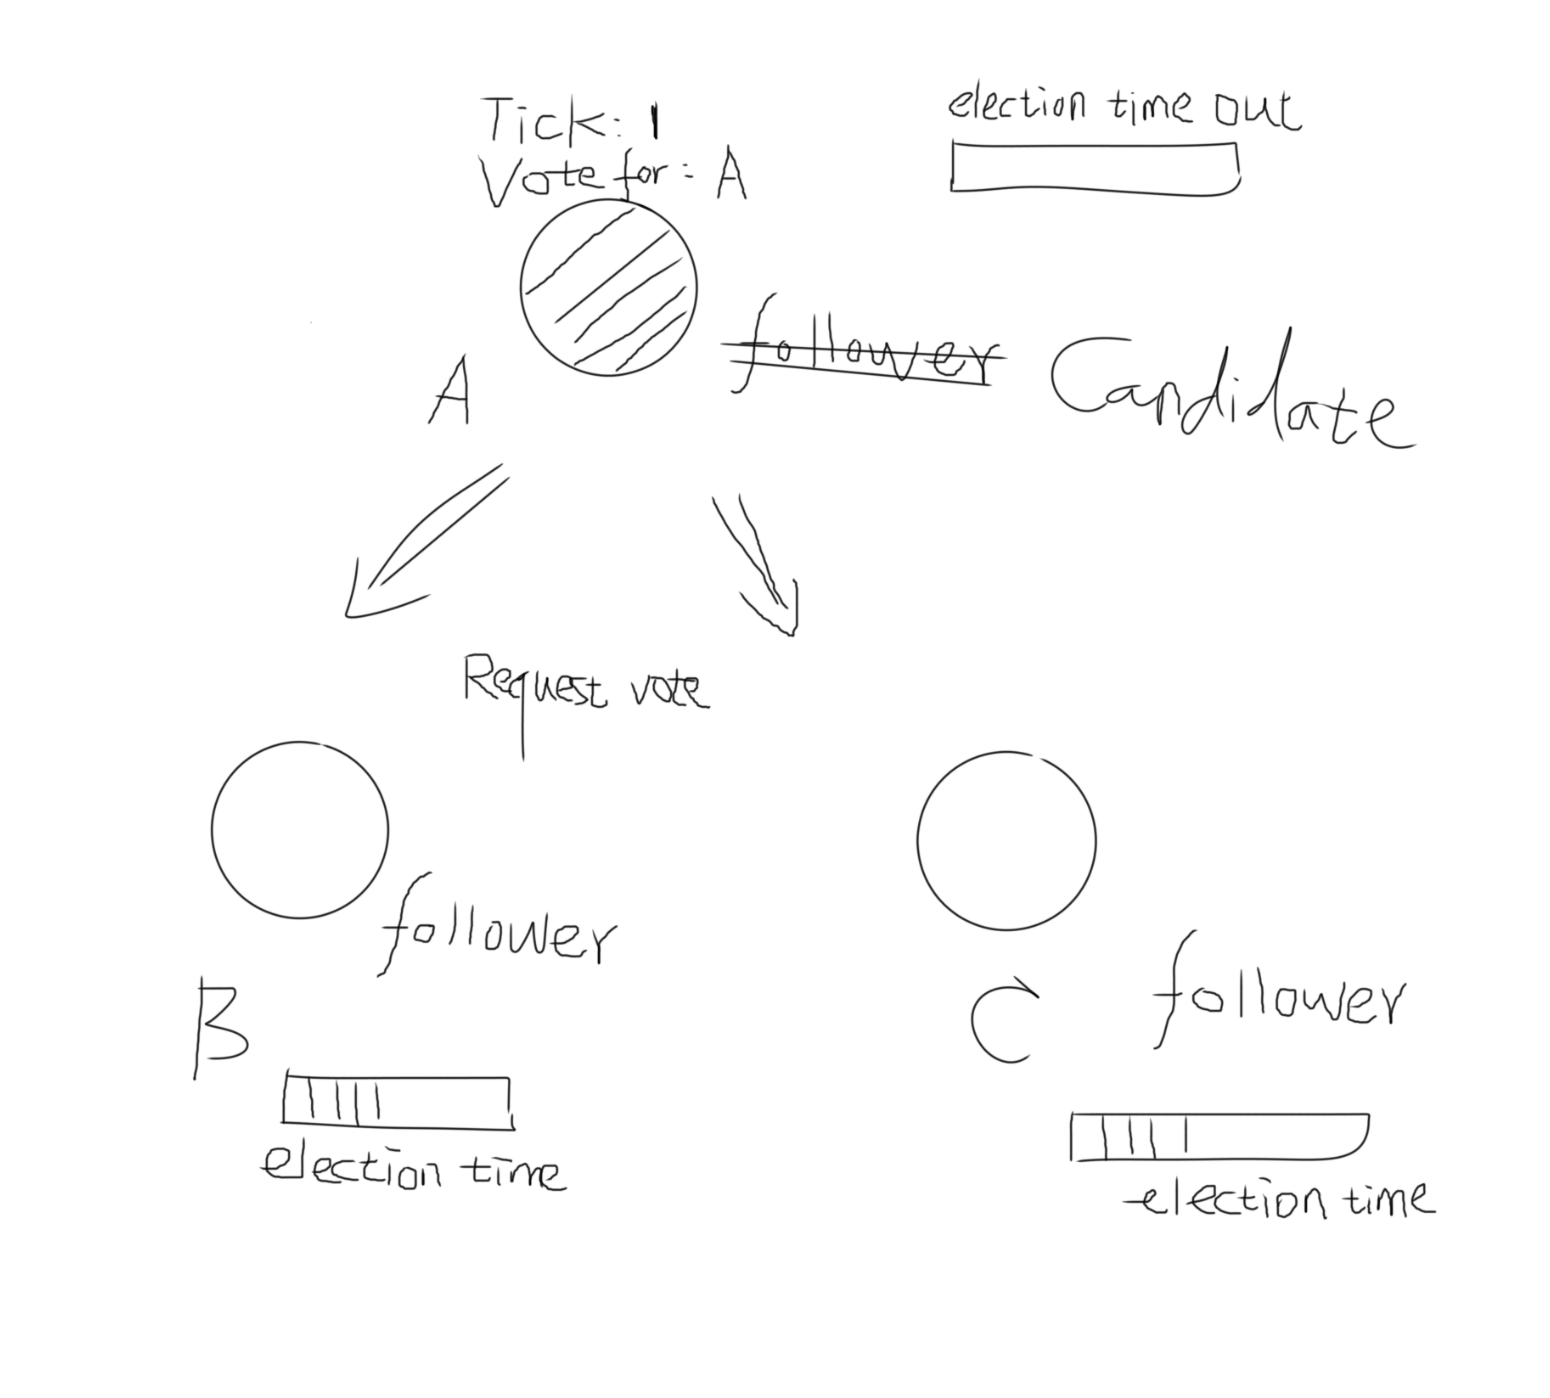 Tick: 1
Vote for: A
election time out
A
follower Candidate
Request vote
follower
B
election time
C
follower
election time